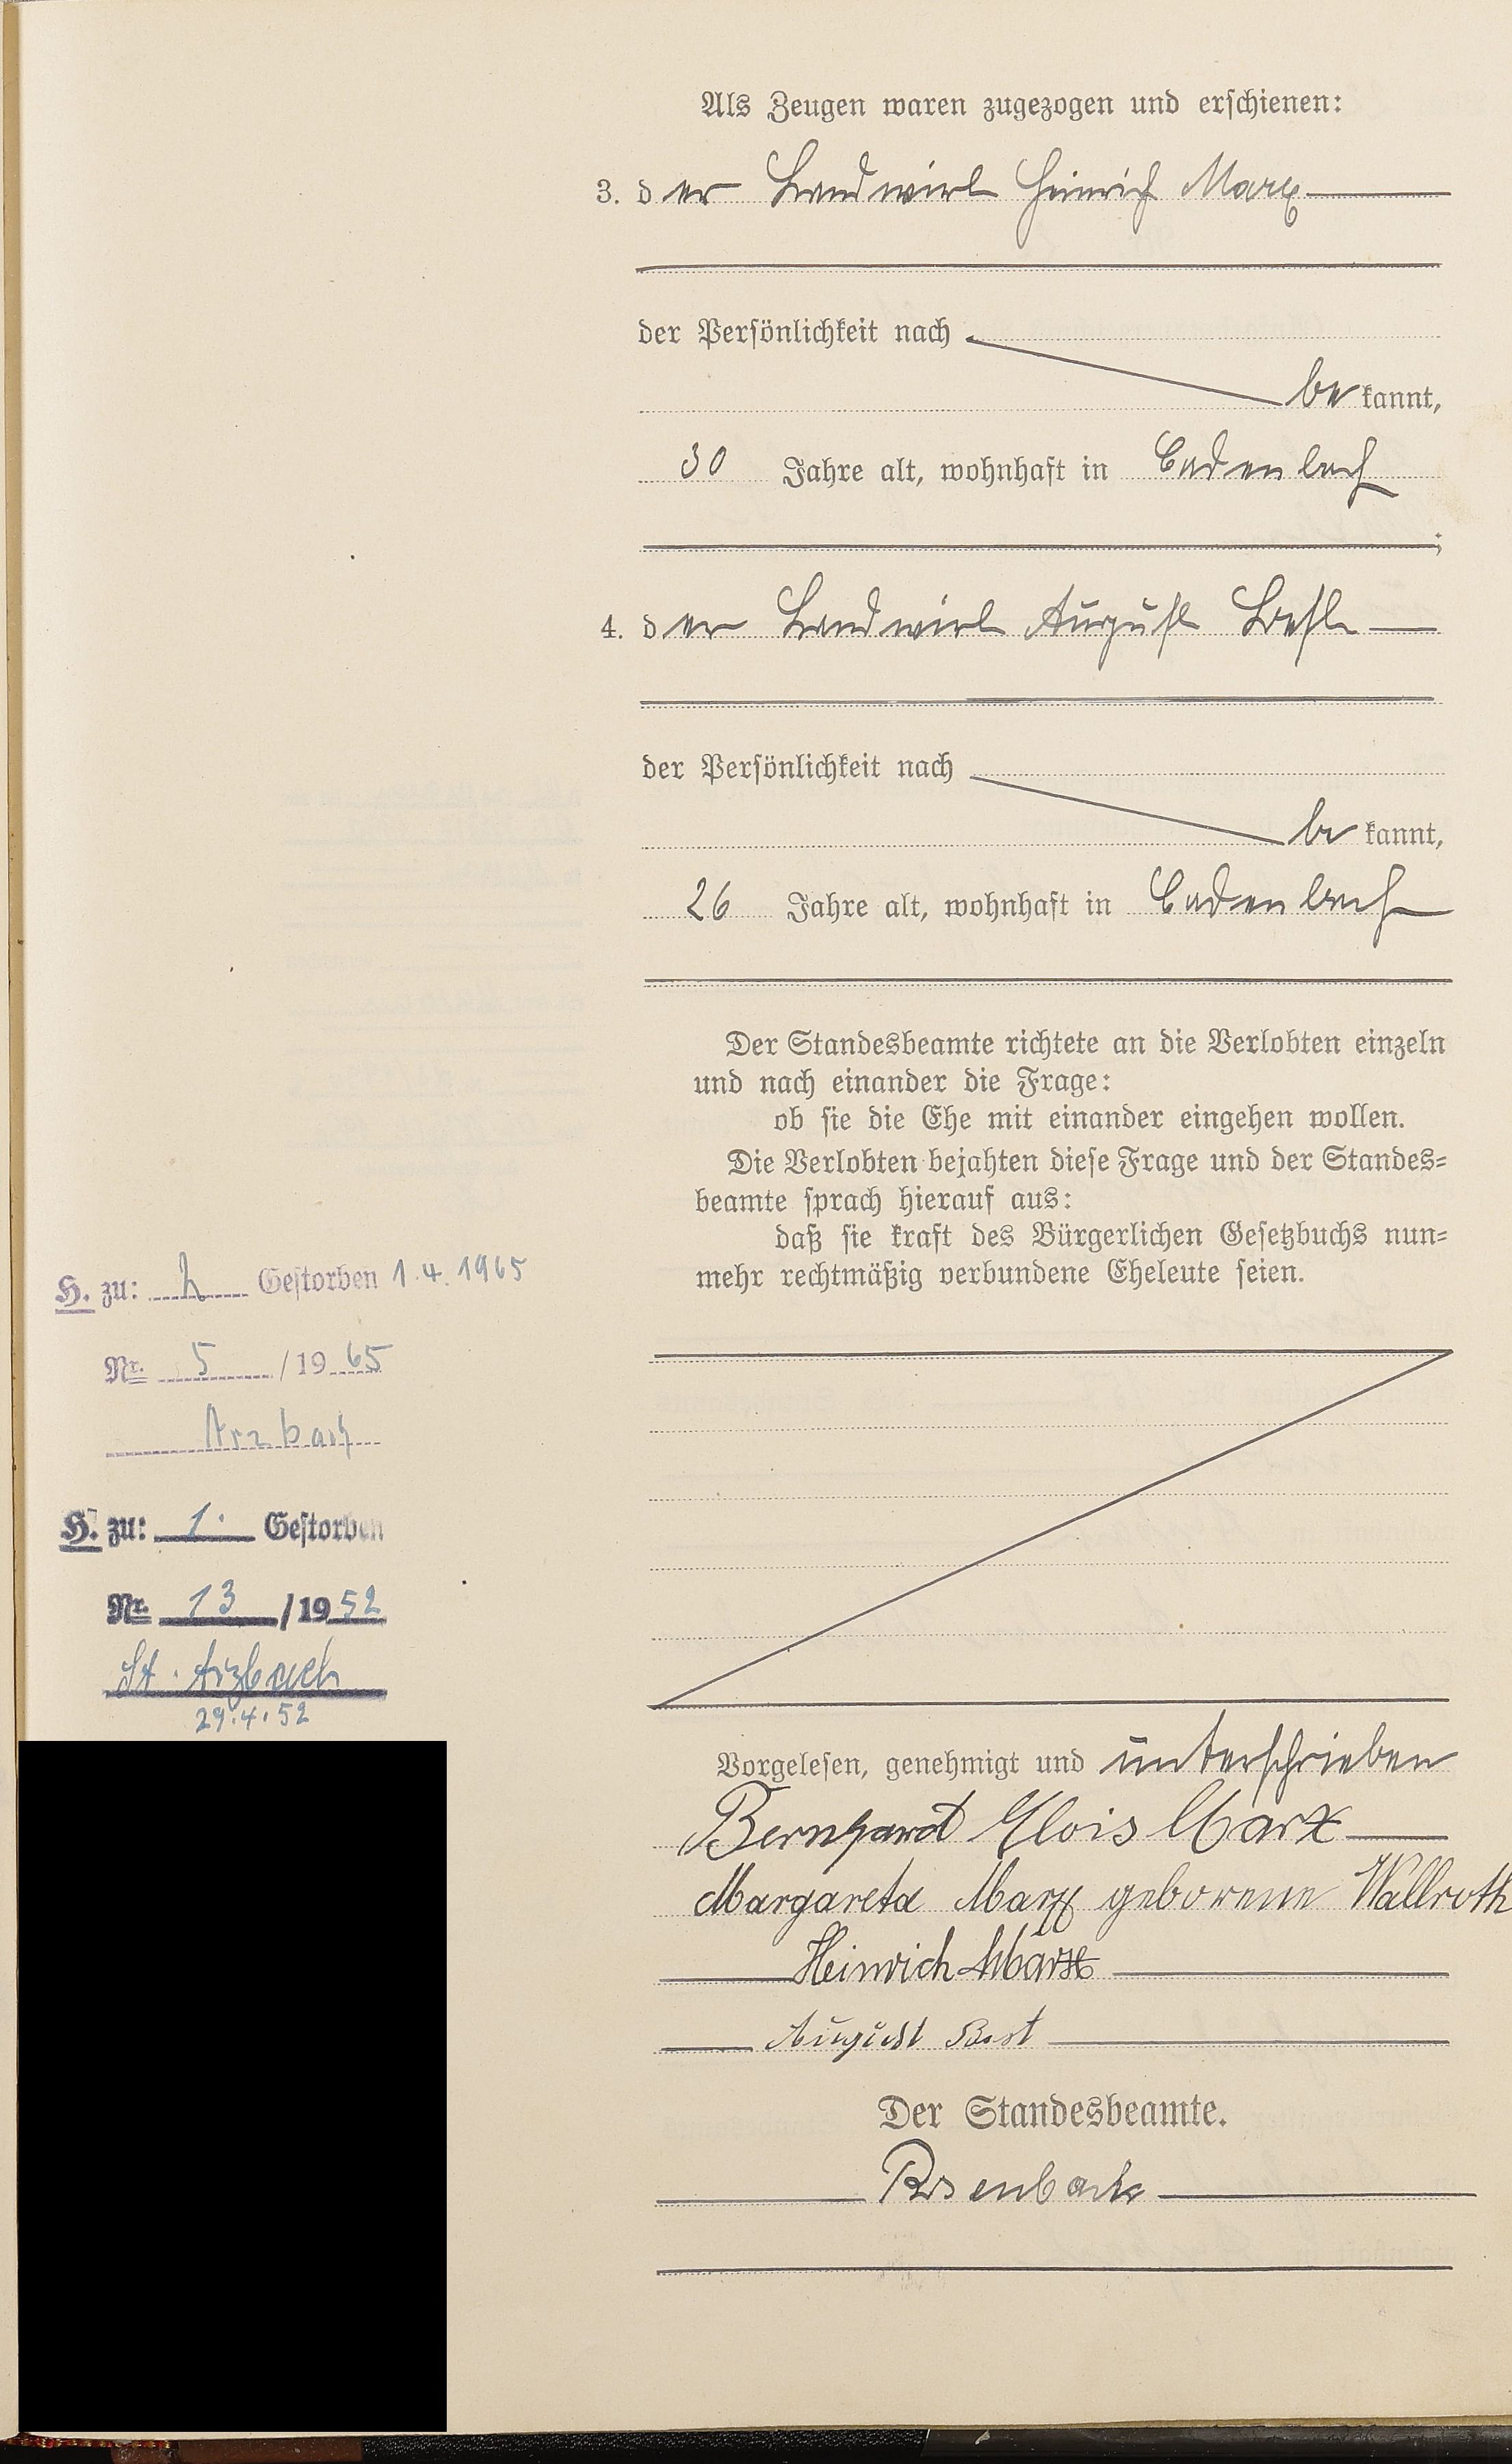 Als Zeugen waren zugezogen und erschienen:
3. der Landwirt Heinrich Marx
der Persönlichkeit nach
bekannt,
30 Jahre alt, wohnhaft in Cadenbach
;
4. der Landwirt August Best
der Persönlichkeit nach
bekannt,
26 Jahre alt, wohnhaft in Cadenbach
Der Standesbeamte richtete an die Verlobten einzeln
und nach einander die Frage:
ob sie die Ehe mit einander eingehen wollen.
Die Verlobten bejahten diese Frage und der Standes=
beamte sprach hierauf aus:
daß sie kraft des Bürgerlichen Gesetzbuchs nun=
mehr rechtmäßig verbundene Eheleute seien.
H. zu: 2 Gestorben 1.4.1965
Nr. 5 / 1965
Arzbach
H. zu: 1. Gestorben
Nr. 13 / 1952
St. Arzbach
29.4.52
Vorgelesen, genehmigt und unterschrieben
Bernhard Alois Marx
Margareta Marx geborene Wallroth
Heinrich Marx
August Best
Der Standesbeamte.
Rosenbach